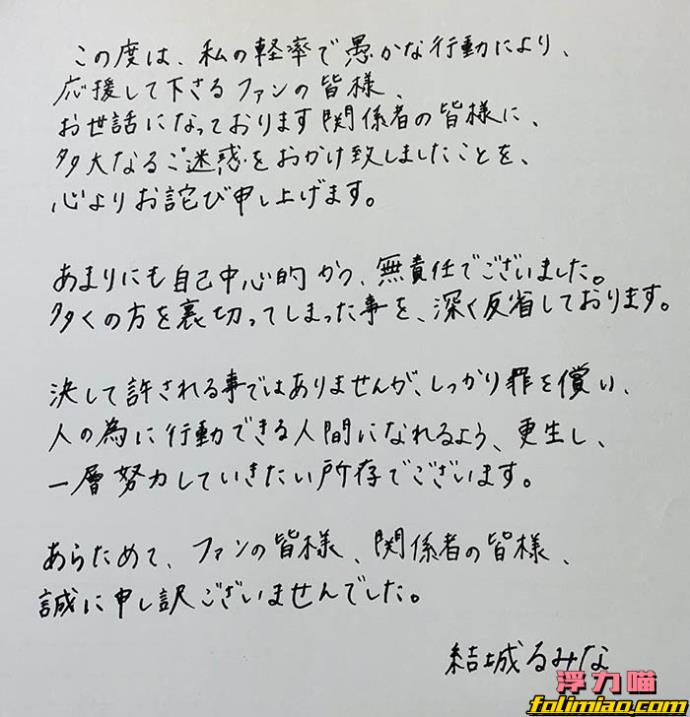 この度は、私の軽率で愚かな行動により、
応援して下さるファンの皆様、
お世話になっております関係者の皆様に、
多大なるご迷惑をおかけ致しましたことを、
心よりお詫び申し上げます。
あまりにも自己中心的かつ、無責任でございました。
多くの方を裏切ってしまった事を、深く反省しております。
決して許される事ではありませんが、しっかり罪を償い、
人の為に行動できる人間になれるよう、更生し、
一層努力していきたい所存でございます。
あらためて、ファンの皆様、関係者の皆様、
誠に申し訳ございませんでした。
結城るみな
浮力喵
folimiao.com